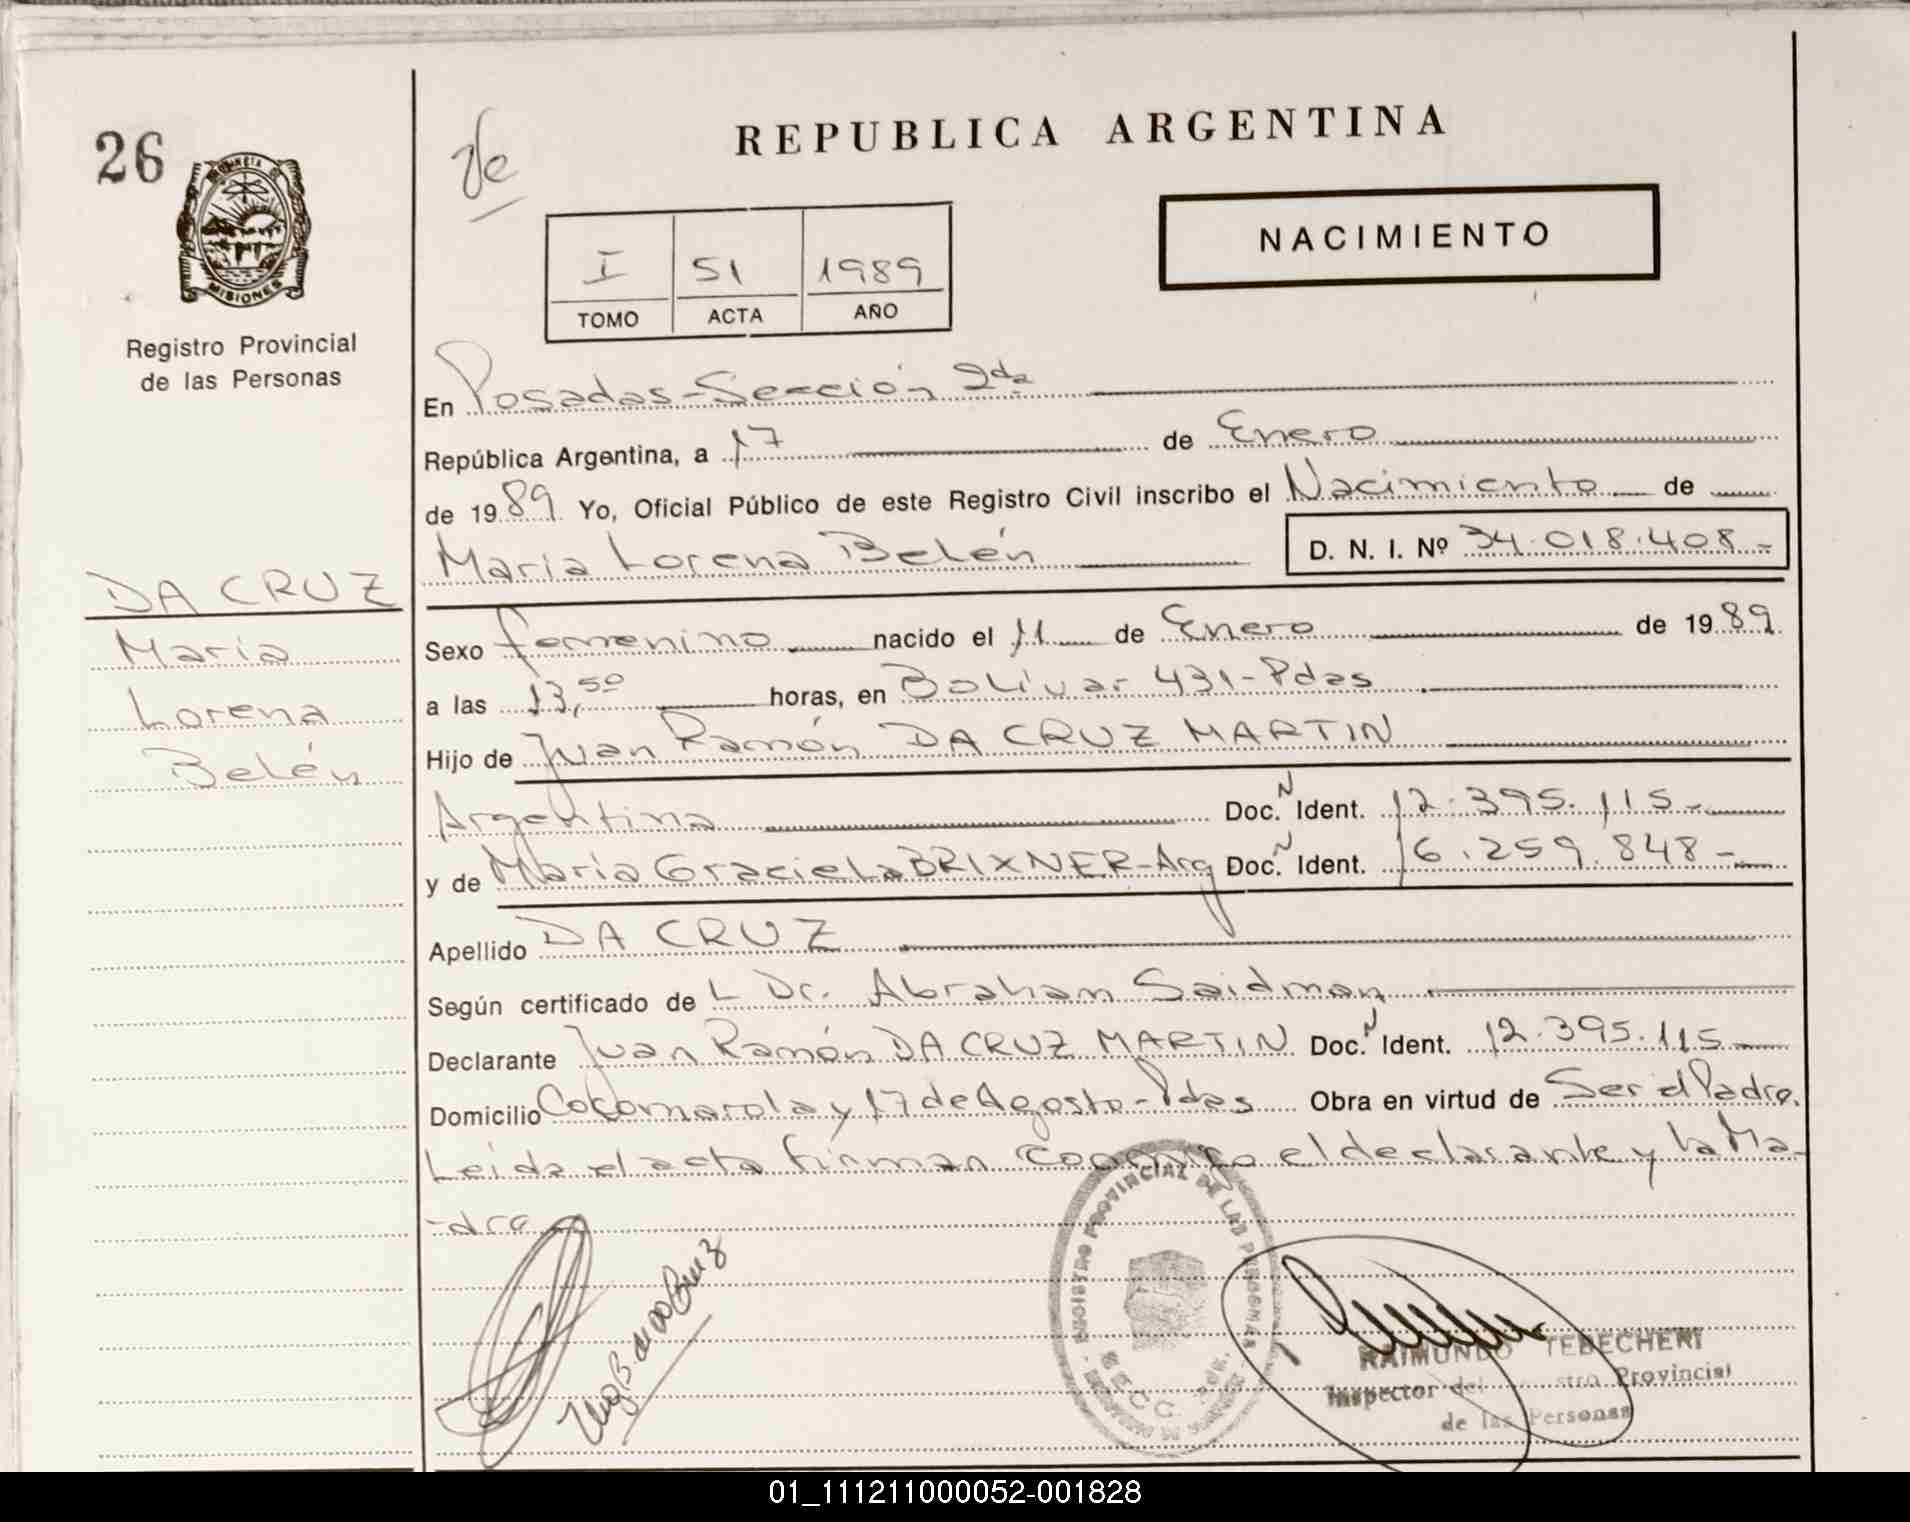 26
PROVINCIA DE
MISIONES
Registro Provincial
de las Personas
REPUBLICA ARGENTINA
NACIMIENTO
I 51 1989
TOMO ACTA AÑO
En Posadas-Sección 2da
República Argentina, a 17 de Enero
de 1989 Yo, Oficial Público de este Registro Civil inscribo el Nacimiento de
María Lorena Belén D. N. I. Nº 34.018.408.-
DA CRUZ
María
Lorena
Belén
Sexo femenino nacido el 11 de Enero de 1989
a las 13,50 horas, en Bolívar 431-Pdas
Hijo de Juan Ramón DA CRUZ MARTIN
Argentina Doc. N Ident. 12.395.115.-
y de María Graciela BRIXNER-Arg Doc. N Ident. 16.259.848-
Apellido DA CRUZ
Según certificado de L Dr. Abraham Saidman
Declarante Juan Ramón DA CRUZ MARTIN Doc. N Ident. 12.395.115
Domicilio Cocomarola y 17 de Agosto-Pdas Obra en virtud de Ser el Padre.
Leída el acta firman conmigo el declarante y la Ma-
-dre
REGISTRO PROVINCIAL DE LAS PERSONAS
SECC. 2da.
RAIMUNDO TEBECHERI
Inspector del Provincial
de las Personas
01_111211000052-001828